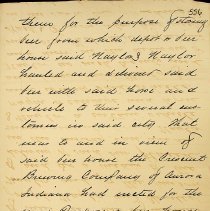 556
them for the purpose of storing
beer from which depot or beer
house said Naylor & Naylor
hauled and delivered said
beer with said horse and
vehicle to their several cus-
tomers in said city that
near to and in view of
said beer house the Crescent
Brewing Company of Aurora
Indiana had erected for the